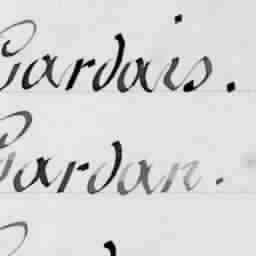 Cardais.
Cardan.